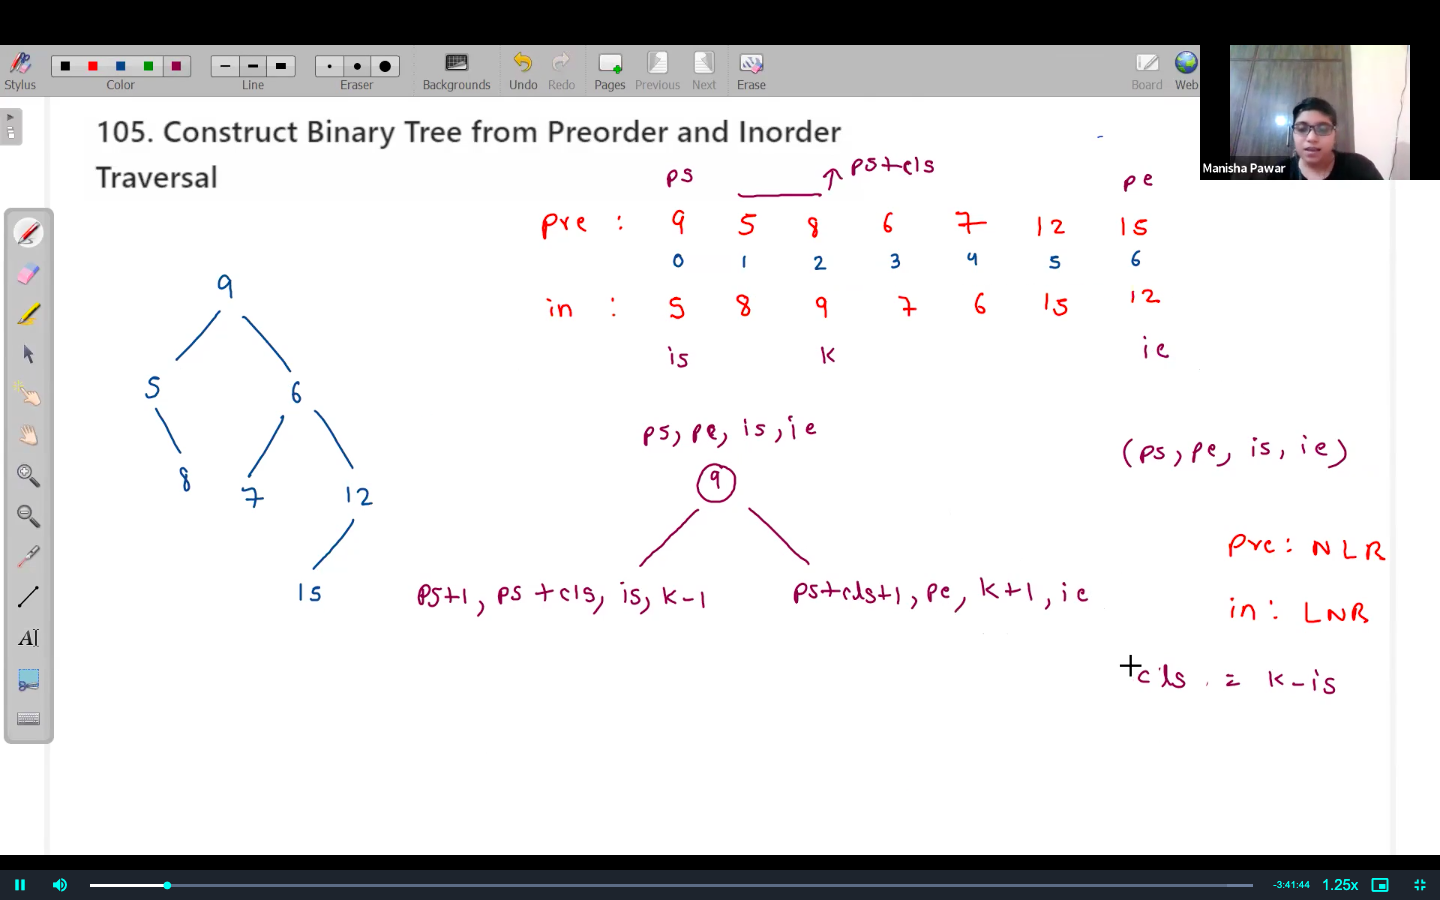 Stylus Color Line Eraser Backgrounds Undo Redo Pages Previous Next Erase Board Web
Manisha Pawar
105. Construct Binary Tree from Preorder and Inorder
Traversal
ps ps+cls pe
pre : 9 5 8 6 7 12 15
0 1 2 3 4 5 6
in : 5 8 9 7 6 15 12
is k ie
9
5 6
8 7 12
15
ps, pe, is, ie
9
ps+1, ps+cls, is, k-1
ps+cls+1, pe, k+1, ie
(ps, pe, is, ie)
Pre: NLR
in: LNR
cls = k-is
AI
-3:41:44 1.25x